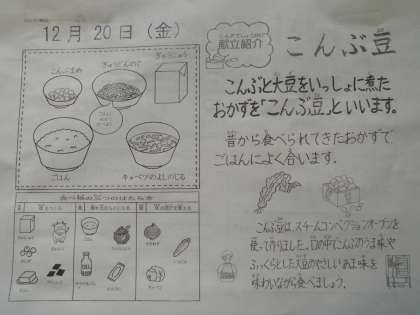 12月20日（金）
こんぶまめ
ぎゅうどんのぐ
ぎゅうにゅう
ごはん
キャベツのみしるのしる
食べ物の三つのはたらき
献立紹介
こんぶ豆
こんぶと大豆をいっしょに煮た
おかずを「こんぶ豆」といいます。
昔から食べられてきたおかずで
ごはんによく合います。
こんぶ豆は、スチームコンベクションオーブンを
使って作りました。口の中にこんぶのうま味や
ふっくらとした大豆のやさしいあま味を
味わいながら食べましょう。